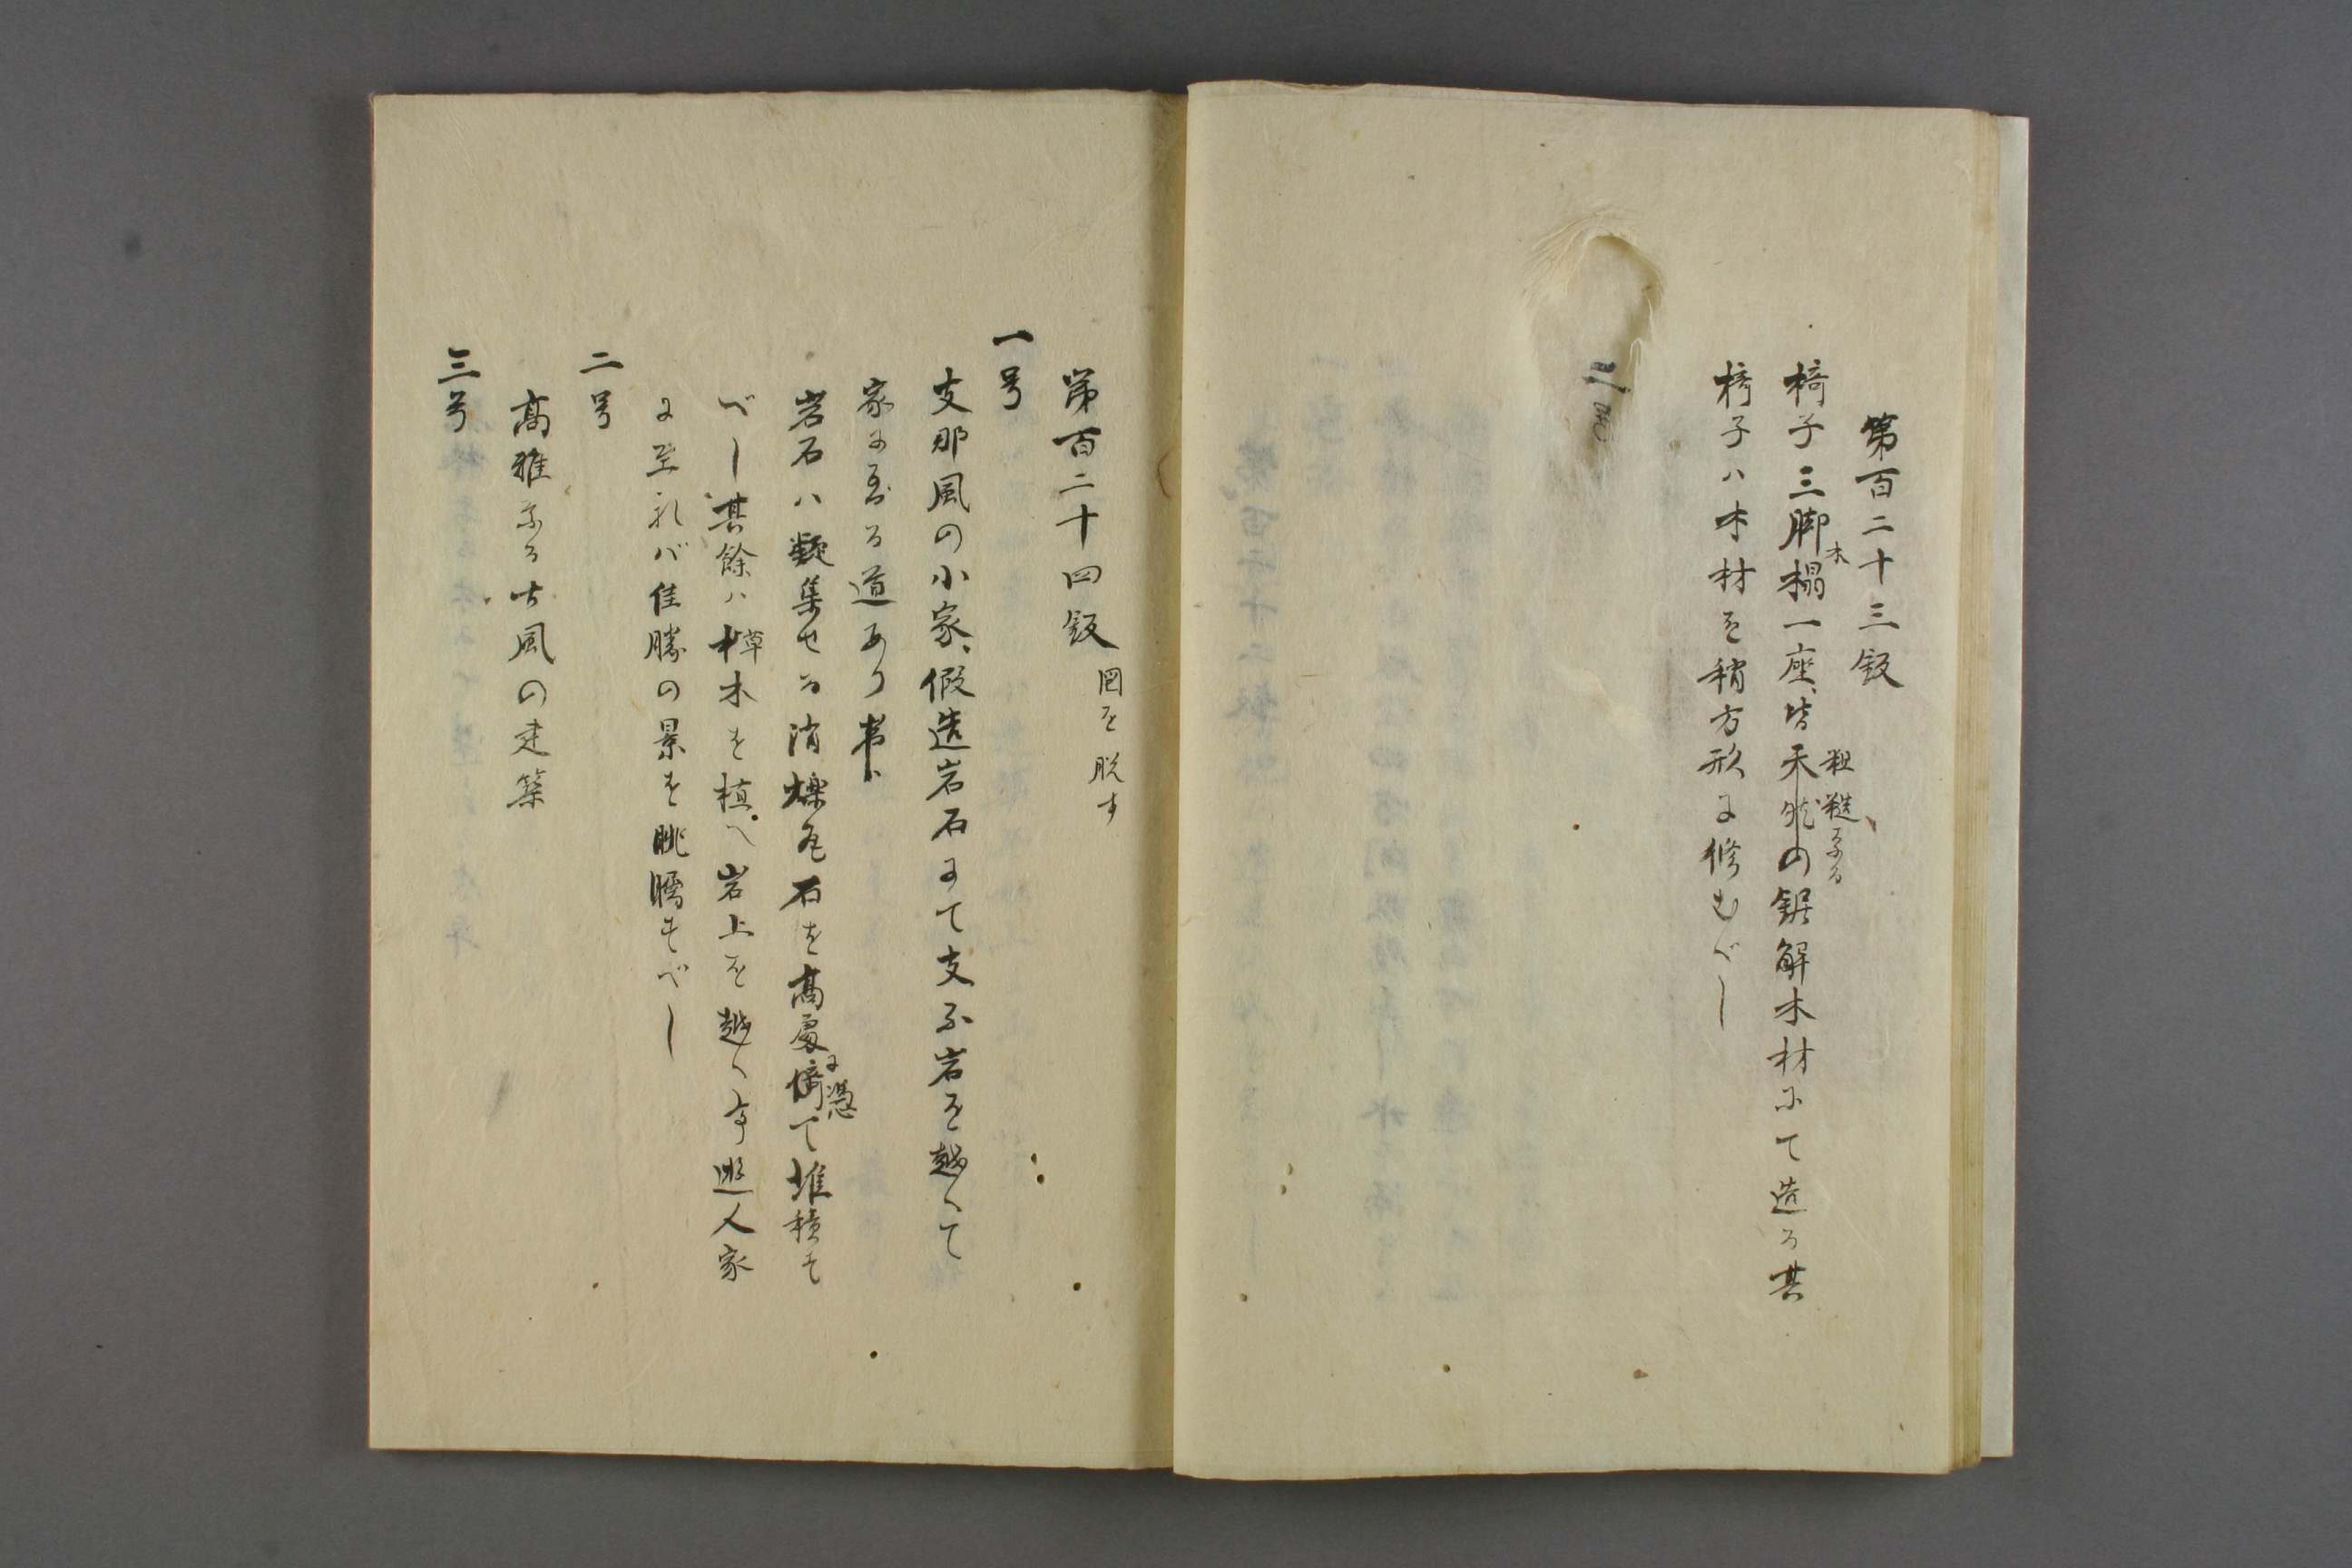 第百二十三鈑
椅子三脚木榻一座、皆粗糙なる天然の鋸解木材にて造る其
椅子ハ木材を稍方形に修むべし
第百二十四鈑 図を脱す
一号
支那風の小家、假造岩石にて支ふ岩を越へて
家に至る道あり
岩石ハ凝集せる消爍石を高處に憑倚て堆積す
べし其餘ハ草木を植へ岩上を越へ遊人家
に至れバ佳勝の景を眺矚すべし
二号
高雅なる古風の建築
三号